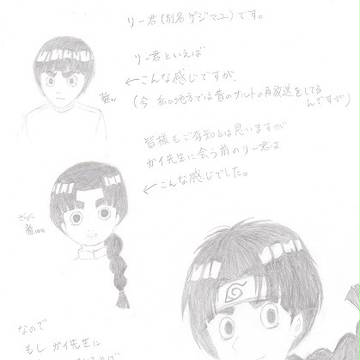 リー君(別名ゲジマユ)です。
リー君といえば
←こんな感じですが、
(今 私の地方では昔のナルトの再放送をしてる
んですが)
昔
皆様もご存知とは思いますが
ガイ先生に会う前のリー君は
←こんな感じでした。
さらに
昔
なので
もし ガイ先生に